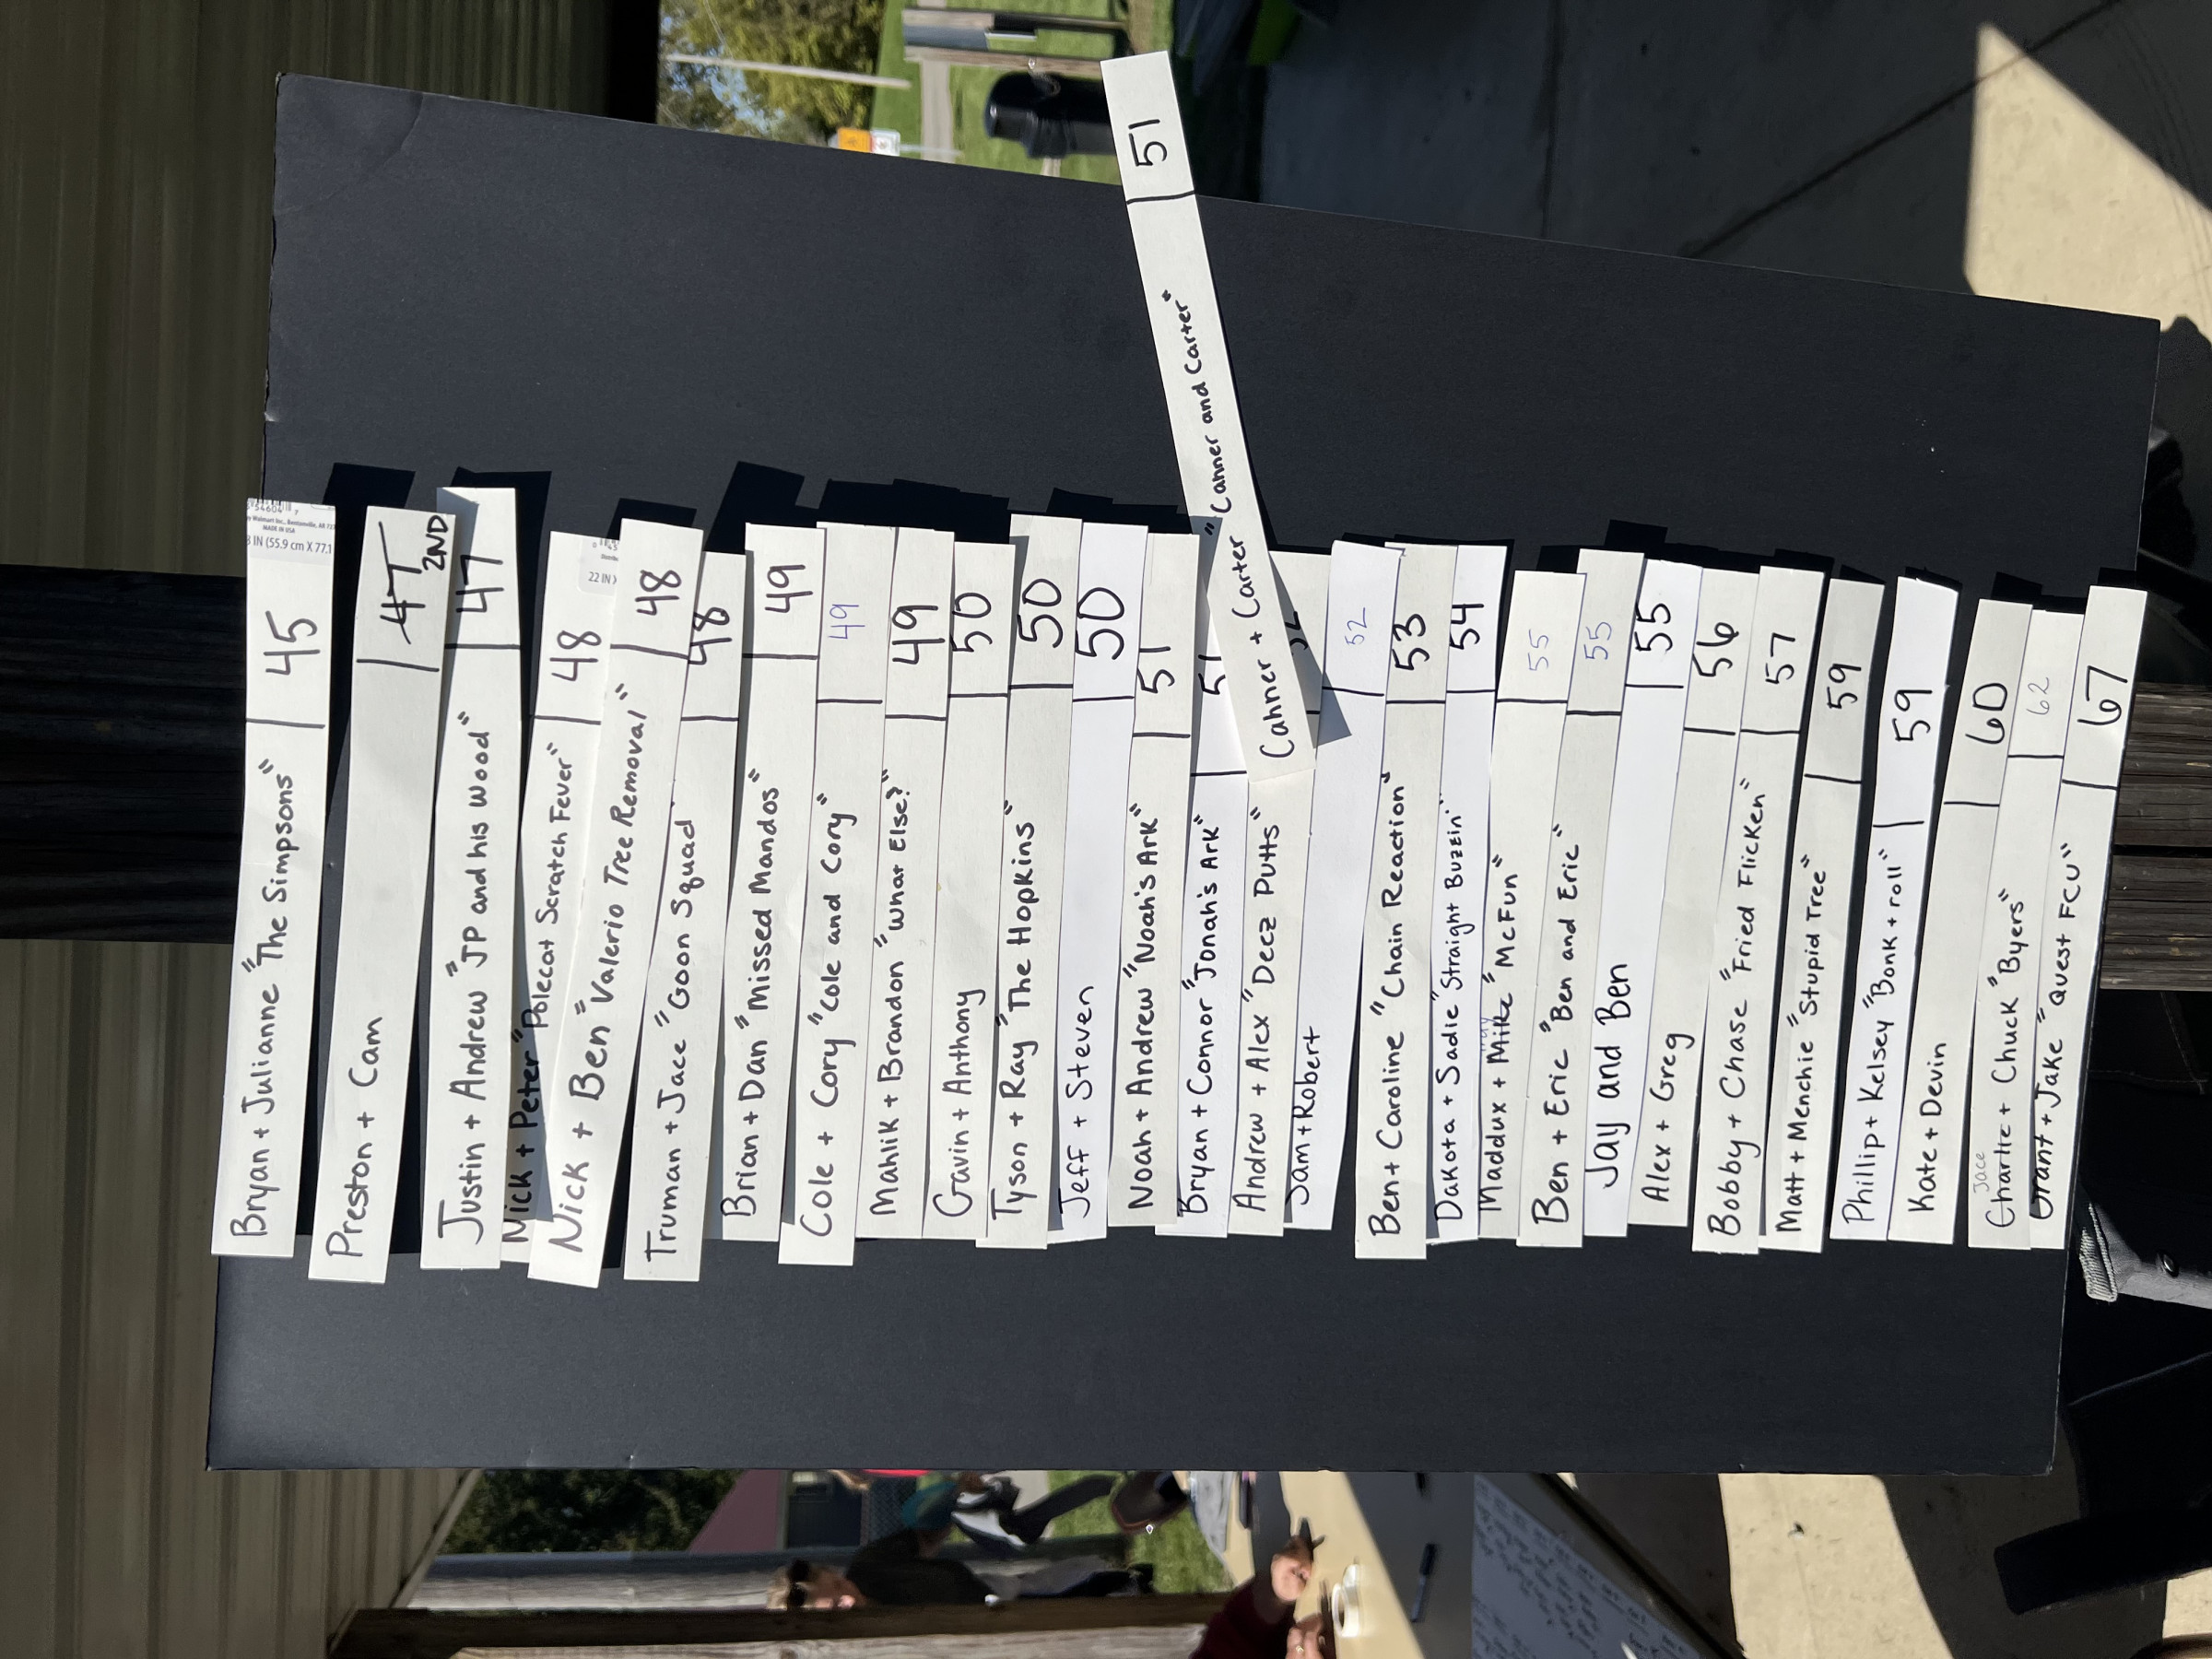 Bryan + Julianne "The Simpsons" 45
Preston + Cam 47 2ND
Justin + Andrew "JP and his wood" 47
Nick + Peter "Polecat Scratch Fever" 48
Nick + Ben "Valerio Tree Removal" 48
Truman + Jace "Goon Squad 48
Brian + Dan "Missed Mandos" 49
Cole + Cory "Cole and Cory" 49
Mahlik + Brandon "What Else?" 49
Gavin + Anthony 50
Tyson + Ray "The Hopkins" 50
Jeff + Steven 50
Noah + Andrew "Noah's Ark" 51
Bryan + Connor "Jonah's Ark" 51
Cahner + Carter "Canner and Carter" 51
Andrew + Alex "Deez Putts" 52
Sam + Robert 52
Ben + Caroline "Chain Reaction" 53
Dakota + Sadie "Straight Buzzin" 54
Maddux + Mike "McFun" 55
Ben + Eric "Ben and Eric" 55
Jay and Ben 55
Alex + Greg 56
Bobby + Chase "Fried Flicken" 57
Matt + Menchie "Stupid Tree" 59
Phillip + Kelsey "Bonk + roll" 59
Kate + Devin 60
Jace
Charlie + Chuck "Byers" 62
Grant + Jake "Quest FCU" 67
MADE IN USA
IN (55.9 cm X 77.1
22 IN